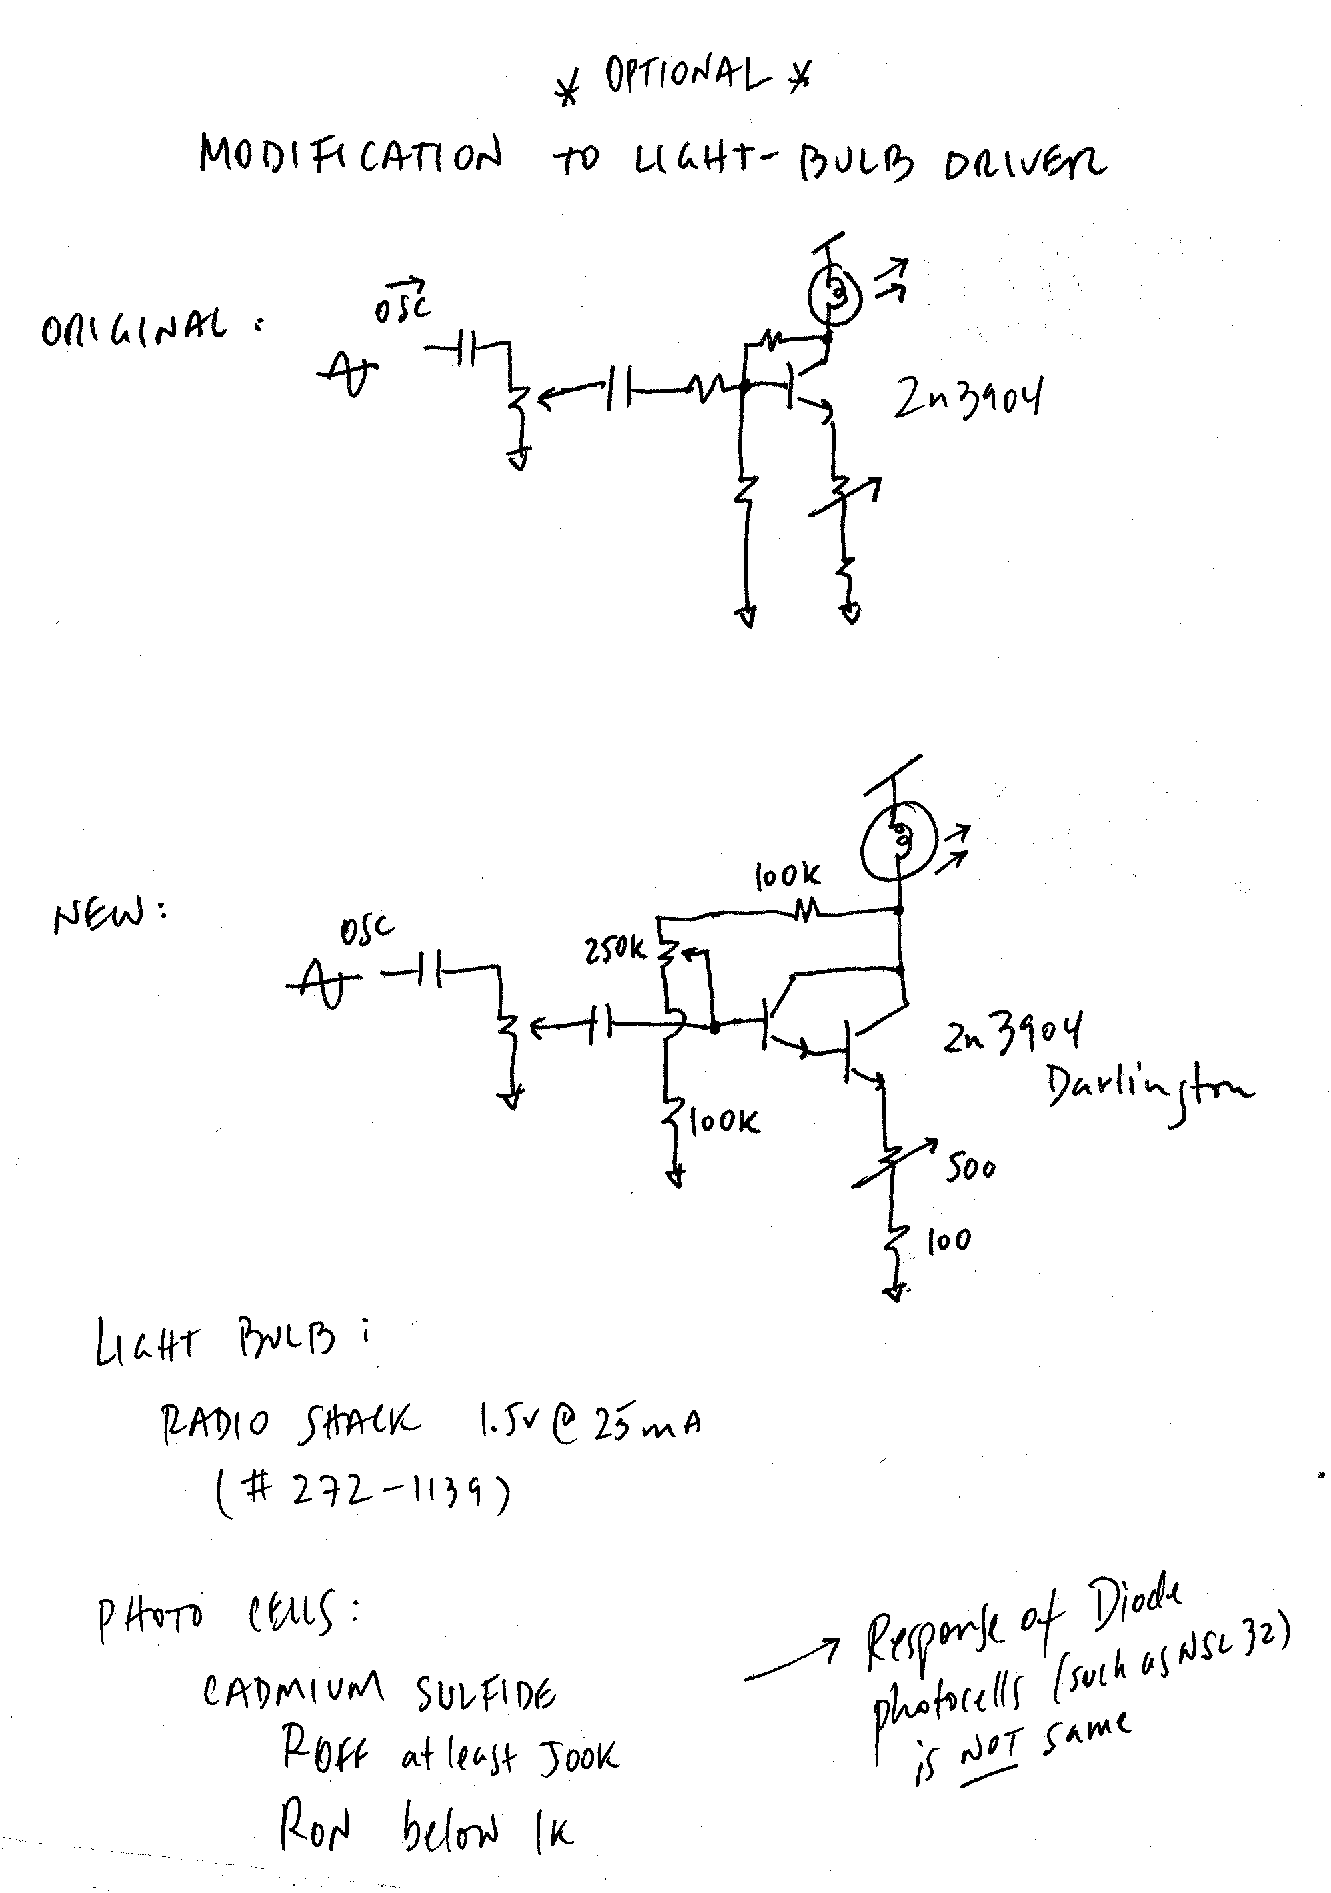 * OPTIONAL *
MODIFICATION TO LIGHT-BULB DRIVER
ORIGINAL:
OSC
2n3904
NEW:
OSC
100K
250K
2n3904
Darlington
100K
500
100
LIGHT BULB:
RADIO SHACK 1.5V @ 25mA
(# 272-1139)
PHOTO CELLS:
CADMIUM SULFIDE
ROFF at least 500K
RON below 1K
Response of Diode
photocells (such as NSL 32)
is NOT same